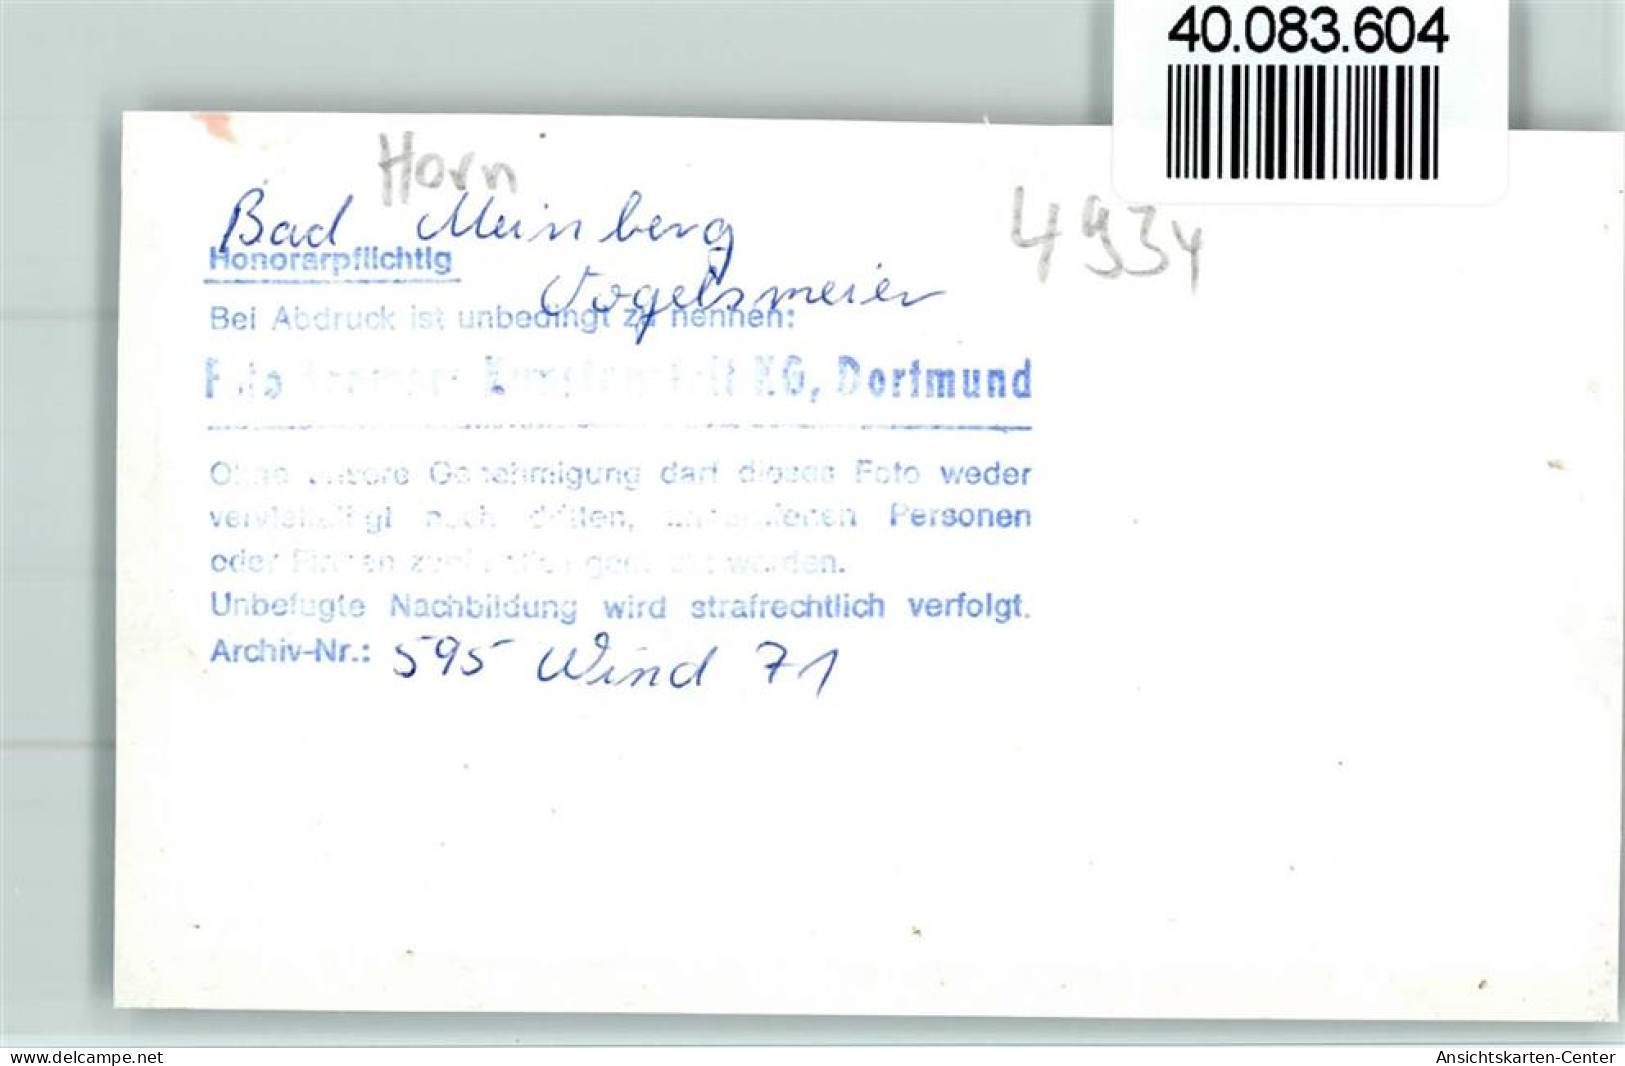 40.083.604
Horn
Bad Meinberg
4934
Honorarpflichtig
Vogelsmeier
Bei Abdruck ist unbedingt zu nennen:
Foto KG, Dortmund
Ohne unsere Genehmigung darf dieses Foto weder
vervielfältigt noch dritten, Personen
oder Firmen werden.
Unbefugte Nachbildung wird strafrechtlich verfolgt.
Archiv-Nr.: 595 Wind 71
www.delcampe.net
Ansichtskarten-Center